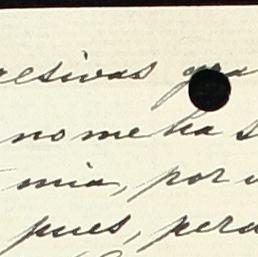 resivas gra
no me ha s
mia, por
pues, pero